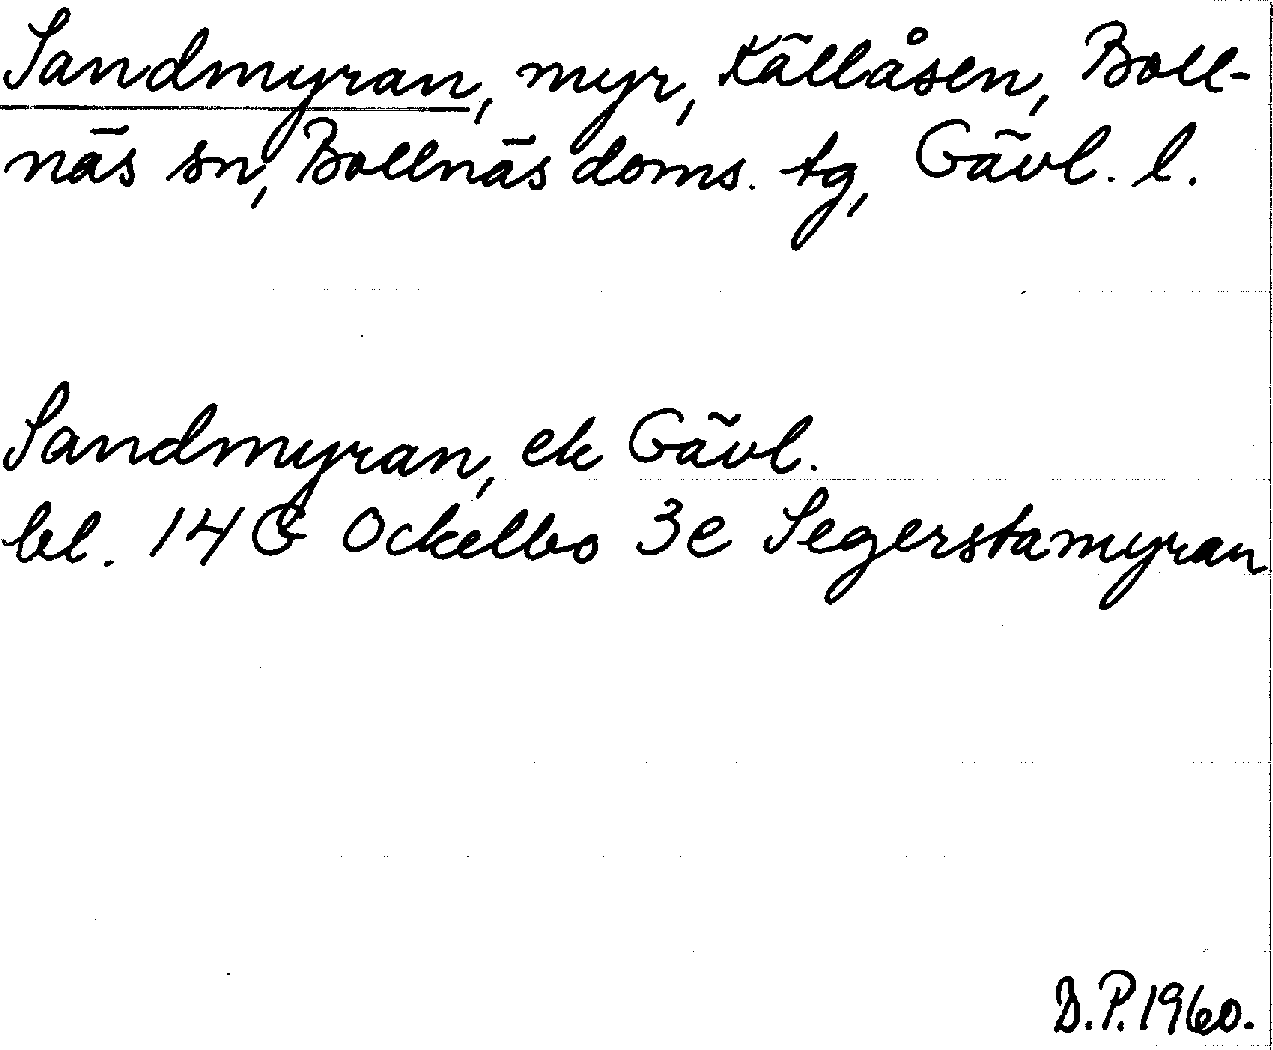 Sandmyran, myr, Källåsen, Boll-
näs sn, Bollnäs doms. tg, Gävl. l.
Sandmyran, ek Gävl.
bl. 14 G Ockelbo 3e Segerstamyran
B.P. 1960.